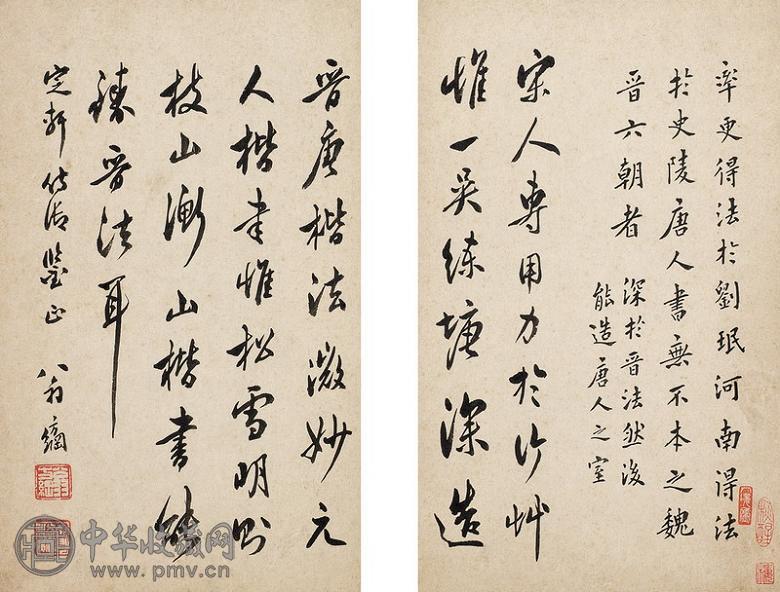 率更得法於劉珉河南得法
於史陵唐人書無不本之魏
晉六朝者
深於晉法然後
能造唐人之室
宋人專用力於行艸
惟一吳練塘深造
晉唐楷法微妙元
人楷書惟松雪明則
枝山衡山楷書能
臻晉法耳
定軒侍御鑒正
中华收藏网
www.pmv.cn